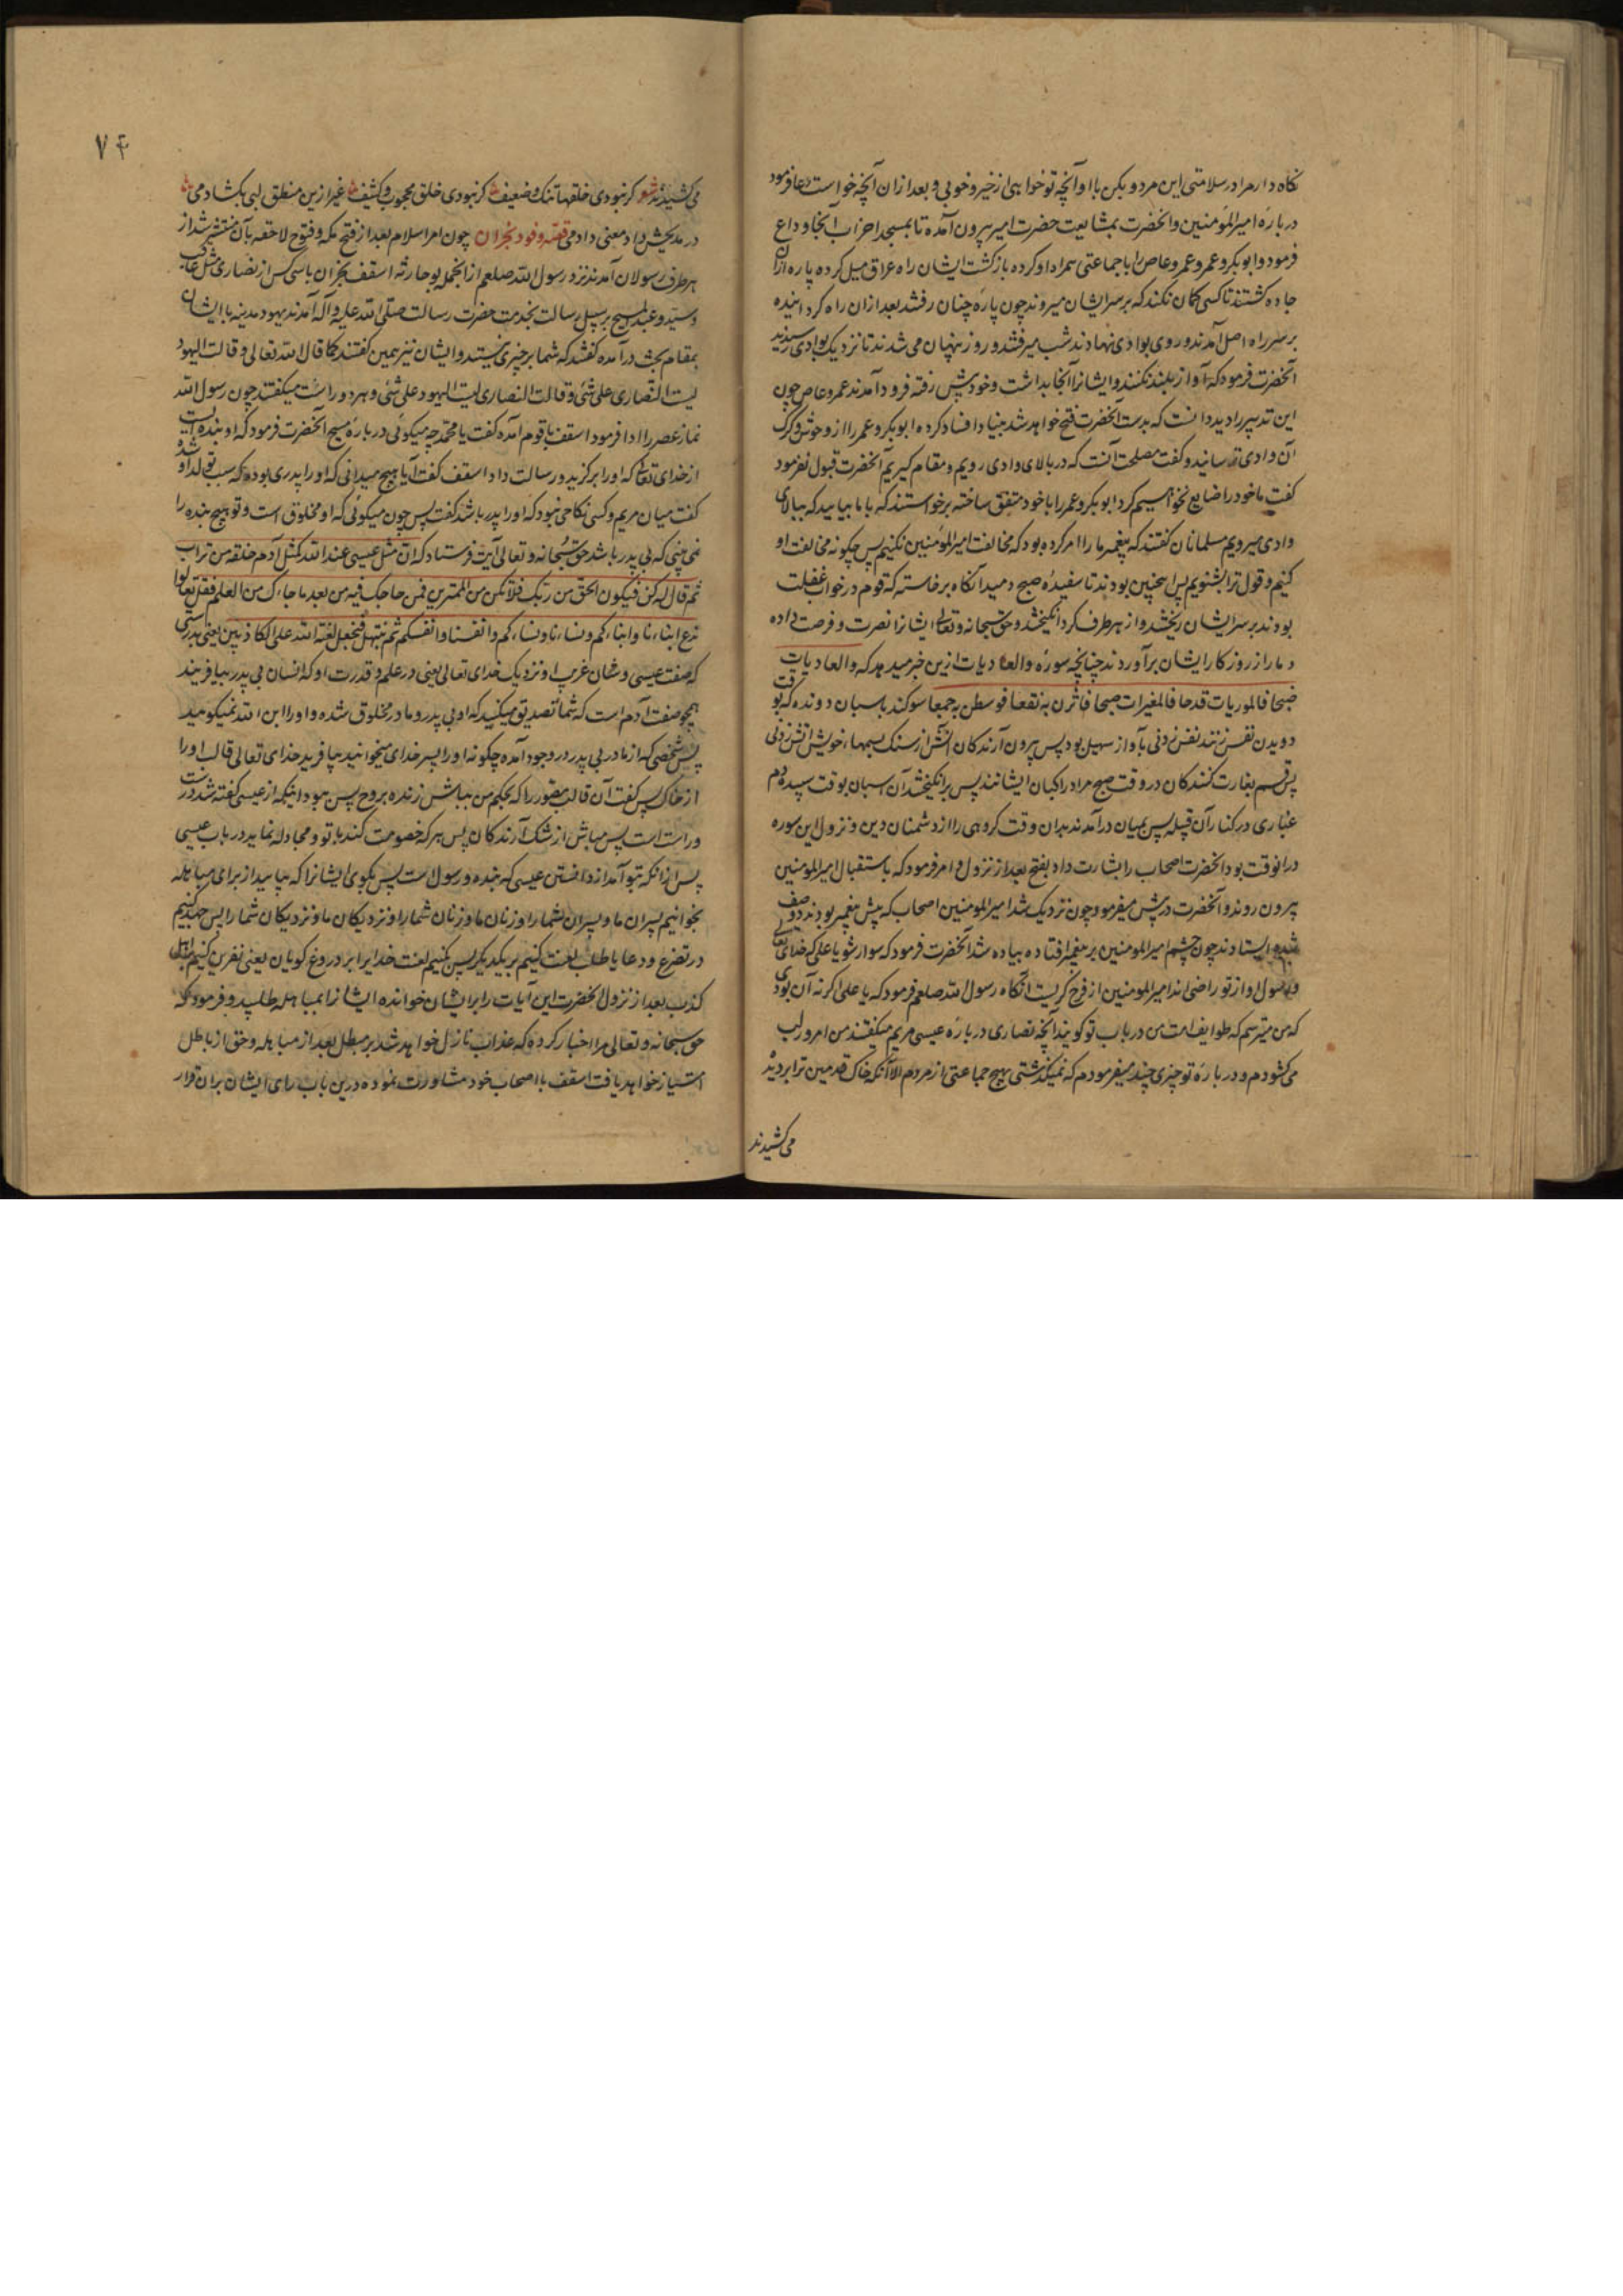 نکاه دار مرا در سلامتی این مرد و بکن با او آنچه تو خواهی از خیر و خوبی و بعد از ان آنچه خواست دعا فرمود
درباره امیرالمؤمنین و انحضرت بمشایعت حضرت امیر بیرون آمده تا بمسجد احزاب آنجا وداع
فرمود و ابوبکر و عمر و عمرو عاص را با جماعتی همراه او کرده بازکشت ایشان راه عراق میل کرده پاره از ان
جاده کشتند تا کسی کمان نکند که بر سر ایشان میروند چون پاره چنان رفتند بعد از ان راه کردانیده
بر سر راه اصل آمدند و روی بوادی نهادند شب میرفتند و روز پنهان می شدند تا نزدیک بوادی رسیدند
آنحضرت فرمود که آواز بلند نکنند و ایشانرا آنجا بداشت و خود پیش رفته فرود آمدند عمرو عاص چون
این تدبیر را دید دانست که بدست آنحضرت فتح خواهد شد بنیاد افساد کرده ابوبکر و عمر را از وحوش و کرک
آن وادی ترسانید و کفت مصلحت آنست که در بالای وادی رویم و مقام کیریم آنحضرت قبول نفرمود
کفت ما خود را ضایع نخواهیم کرد ابوبکر و عمر را با خود متفق ساخته برخواستند که با ما بیایید که ببالای
وادی میرویم مسلمانان کفتند که پیغمبر ما را امر کرده بود که مخالفت امیرالمؤمنین نکنیم پس چکونه مخالفت او
کنیم و قول ترا بشنویم پس اینچنین بودند تا سفیده صبح دمید آنکاه برخاسته که قوم در خواب غفلت
بودند بر سر ایشان ریختند و از هر طرف کرد انکیختند و حق سبحانه و تعالی ایشانرا نصرت و فرصت داده
دمار از روزکار ایشان برآوردند چنانچه سوره والعادیات ازین خبر میدهد که والعادیات
ضبحا فالموریات قدحا فالمغیرات صبحا فاثرن به نقعا فوسطن به جمعا سوکند باسبان دونده که بوقت
دویدن نفس زنند نفس زدنی بآواز سهیل بود پس بیرون آرندکان آتش از سنک بسمهاء خویش آتش زدنی
پس قسم بغارت کنندکان در وقت صبح مراد راکبان ایشانند پس برانکیختند آن اسبان بوقت سپیده دم
غباری در کنار آن قبیله پس بمیان درآمدند بدان وقت کروهی را از دشمنان دین و نزول این سوره
در انوقت بود انحضرت اصحاب را بشارت داد بفتح بعد از نزول و امر فرمود که باستقبال امیرالمومنین
بیرون روند و آنحضرت در پیش میفرمود چون نزدیک شد امیرالمومنین اصحاب که پیش پیغمبر بودند دو صف
شده ایستادند چون چشم امیرالمومنین بر پیغمبر افتاده پیاده شد آنحضرت فرمود که سوار شو یا علی که خدای تعالی
و رسول او از تو راضی اند امیرالمومنین از فرح کریست آنکاه رسول الله صلعم فرمود که یا علی اکر نه آن بودی
که من میترسم که طوایف امت من در باب تو کویند آنچه نصاری درباره عیسی مریم میکفتند من امروز لب
می کشودم و درباره تو چیزی چند میفرمودم که نمیکذشتی بهیچ جماعتی از مردم الا آنکه خاک قدمین ترا بر دیده
می کشیدند
۷۴
می کشیدند شعر کر نبودی خلقها تنک و ضعیف کر نبودی خلق محجوب و کثیف غیر ازین منطق لبی بکشادمی
در مدیحش داد معنی دادمی قصه وفود نجران چون امر اسلام بعد از فتح مکه و فتوح لاحقه بآن منتشر شد از
هر طرف رسولان آمدند نزد رسول الله صلعم از انجمله بوحارثه اسقف نجران با سی کس از نصاری مثل عاقب
و سید و عبدالمسیح بر سبیل رسالت بخدمت حضرت رسالت صلی الله علیه و آله آمدند یهود مدینه با ایشان
بمقام بحث درآمده کفتند که شما بر چیزی نیستید و ایشان نیز همین کفتند کما قال الله تعالی و قالت الیهود
لیست النصاری علی شئ و قالت النصاری لیست الیهود علی شئ و هر دو راست میکفتند چون رسول الله
نماز عصر را ادا فرمود اسقف با قوم آمده کفت یا محمد چه میکوئی درباره مسیح آنحضرت فرمود که او بنده ایست
از خدای تعالی که او را برکزید و رسالت داد اسقف کفت آیا هیچ میدانی که او را پدری بوده که سبب تولد او شده
کفت میان مریم و کسی نکاحی نبود که او را پدر باشد کفت پس چون میکوئی که او مخلوق است و تو هیچ بنده را
نمی بینی که بی پدر باشد حق سبحانه و تعالی آیت فرستاد که ان مثل عیسی عند الله کمثل آدم خلقه من تراب
ثم قال له کن فیکون الحق من ربک فلا تکن من الممترین فمن حاجک فیه من بعد ما جاءک من العلم فقل تعالوا
ندع ابناءنا و ابناءکم و نساءنا و نساءکم و انفسنا و انفسکم ثم نبتهل فنجعل لعنة الله علی الکاذبین یعنی بدرستی
که صفت عیسی و شان غریب او نزدیک خدای تعالی یعنی در علم و قدرت او که انسان بی پدر بیافریند
همچو صفت آدم است که شما تصدیق میکنید که او بی پدر و مادر مخلوق شده و او را ابن الله نمیکوئید
پس شخصی که از مادر بی پدر در وجود آمده چکونه او را پسر خدای میخوانید بیافرید خدای تعالی قالب او را
از خاک پس کفت آن قالب مصور را که بحکم من بباش زنده بروح پس ببود اینکه از عیسی کفته شد درست
و راست است پس مباش از شک آرندکان پس هر که خصومت کند با تو و مجادله نماید در باب عیسی
پس از انکه بتو آمد از دانستن عیسی که بنده و رسول است پس بکوی ایشانرا که بیایید از برای مباهله
بخوانیم پسران ما و پسران شما را و زنان ما و زنان شما را و نزدیکان ما و نزدیکان شما را پس جهد کنیم
در تضرع و دعا یا طلب لعنت کنیم بر یکدیکر پس بکنیم لعنت خدایرا بر دروغ کویان یعنی نفرین کنیم
کذب بعد از نزول انحضرت این آیات را بر ایشان خوانده ایشانرا بمباهله طلبید و فرمود که
حق سبحانه و تعالی مرا اخبار کرده که عذاب نازل خواهد شد بر مبطل بعد از مباهله و حق از باطل
امتیاز خواهد یافت اسقف با اصحاب خود مشاورت نموده درین باب رای ایشان بران قرار